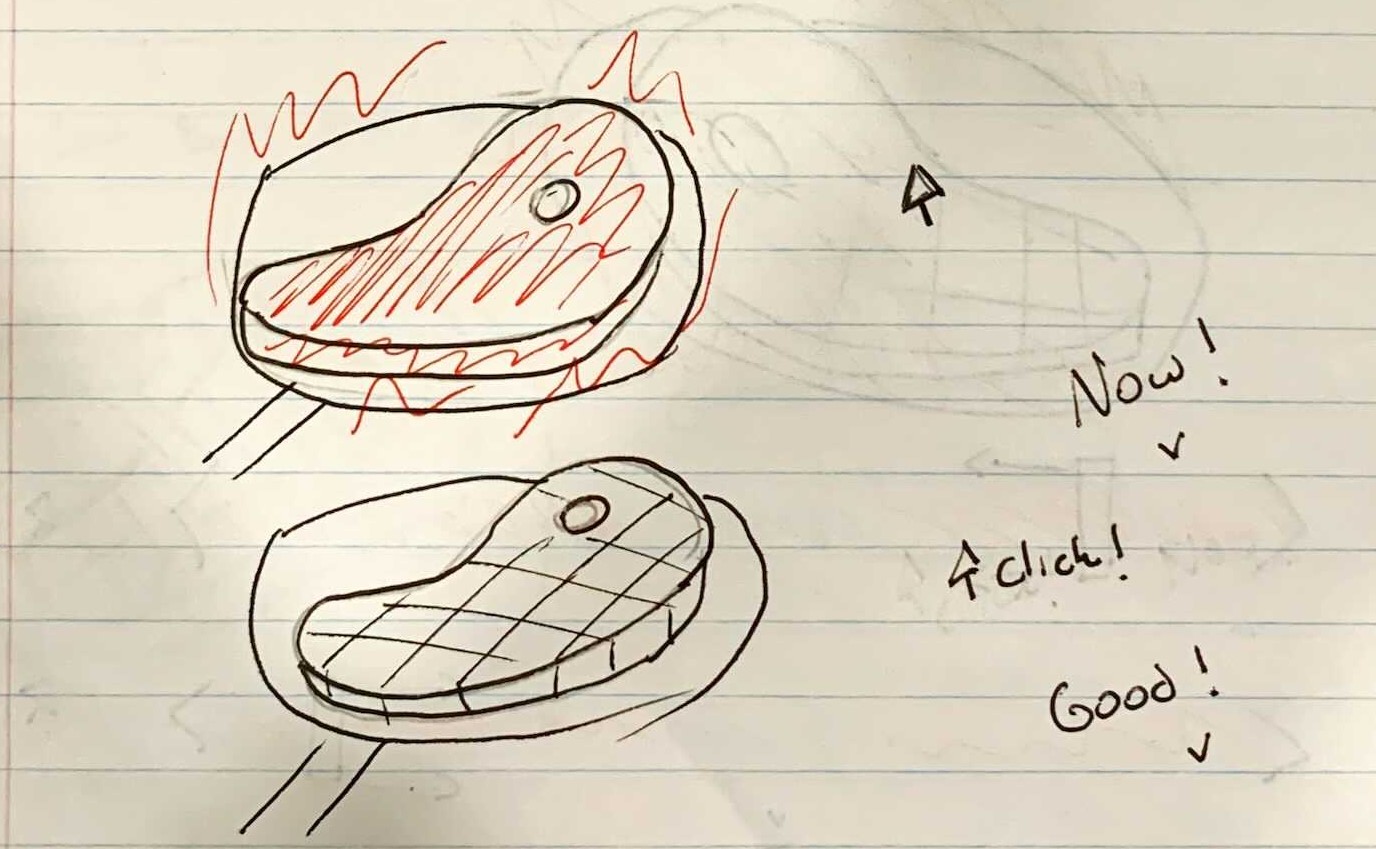 Now!
click!
Good!